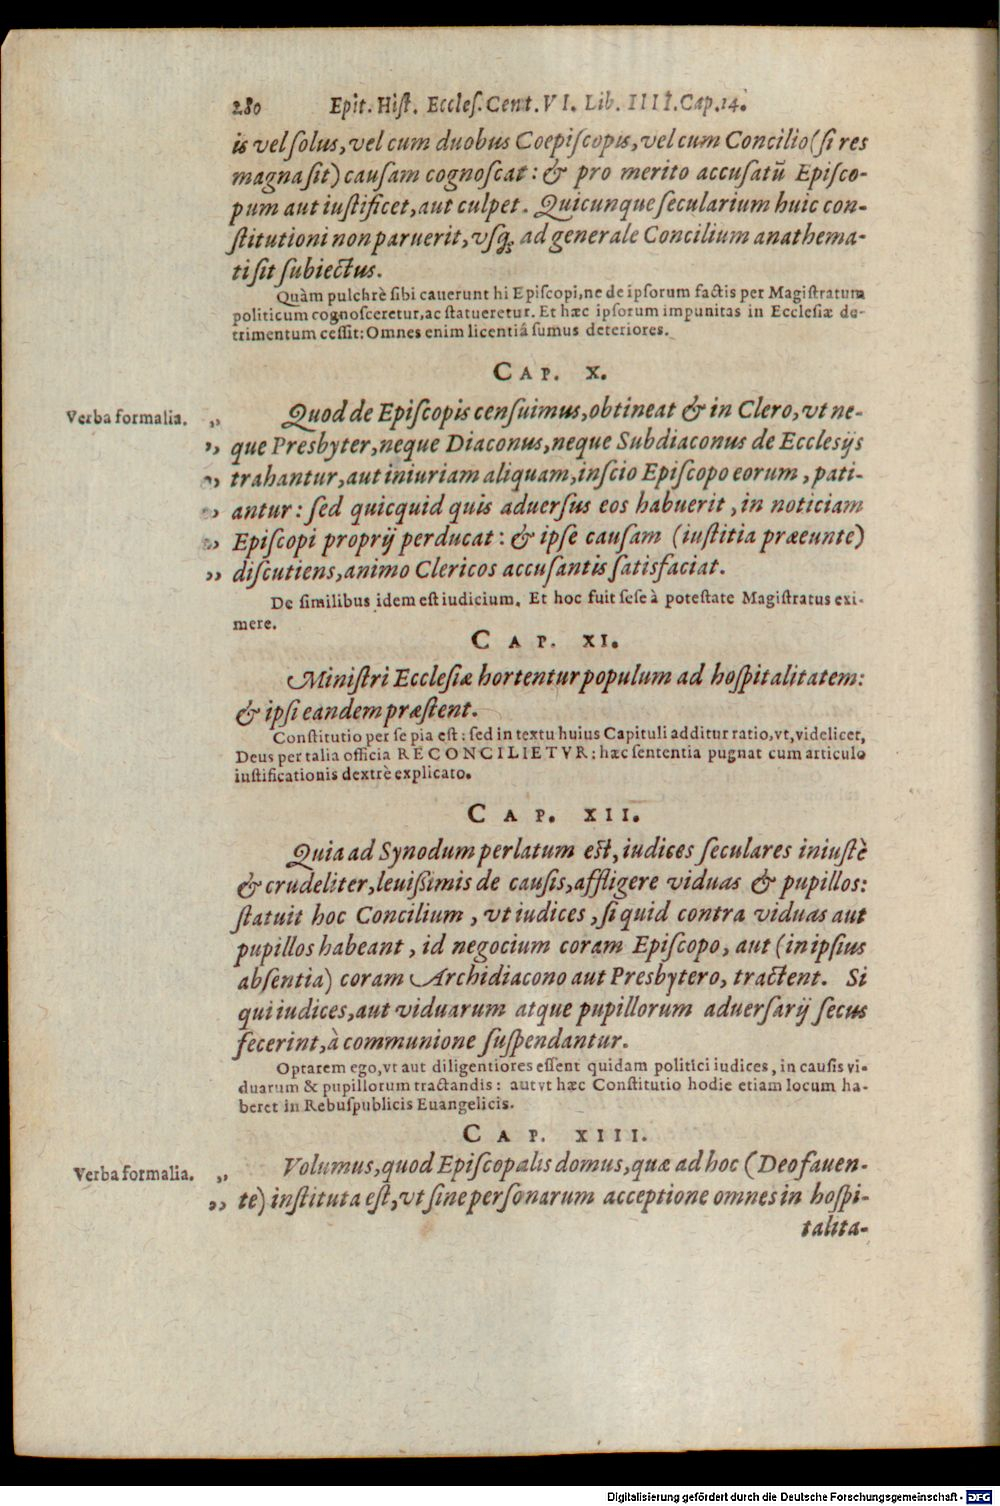 280 Epit. Hiſt. Eccleſ. Cent. VI. Lib. IIII. Cap. 14.
is vel ſolus, vel cum duobus Coepiſcopis, vel cum Concilio (ſi res
magna ſit) cauſam cognoſcat: & pro merito accuſatũ Epiſco-
pum aut iuſtificet, aut culpet. Quicunque ſecularium huic con-
ſtitutioni non paruerit, vſq; ad generale Concilium anathema-
ti ſit ſubiectus.
Quàm pulchrè ſibi cauerunt hi Epiſcopi, ne de ipſorum factis per Magiſtratum
politicum cognoſceretur, ac ſtatueretur. Et hæc ipſorum impunitas in Eccleſiæ de-
trimentum ceſſit: Omnes enim licentiâ ſumus deteriores.
CAP. X.
Verba formalia. „ Quod de Epiſcopis cenſuimus, obtineat & in Clero, vt ne-
„ que Presbyter, neque Diaconus, neque Subdiaconus de Eccleſijs
„ trahantur, aut iniuriam aliquam, inſcio Epiſcopo eorum, pati-
„ antur: ſed quicquid quis aduerſus eos habuerit, in noticiam
„ Epiſcopi proprij perducat: & ipſe cauſam (iuſtitia præeunte)
„ diſcutiens, animo Clericos accuſantis ſatisfaciat.
De ſimilibus idem eſt iudicium. Et hoc fuit ſeſe à poteſtate Magiſtratus exi-
mere.
CAP. XI.
Miniſtri Eccleſiæ hortentur populum ad hoſpitalitatem:
& ipſi eandem præſtent.
Conſtitutio per ſe pia eſt: ſed in textu huius Capituli additur ratio, vt, videlicet,
Deus per talia officia RECONCILIETVR: hæc ſententia pugnat cum articulo
iuſtificationis dextrè explicato.
CAP. XII.
Quia ad Synodum perlatum eſt, iudices ſeculares iniuſtè
& crudeliter, leuißimis de cauſis, affligere viduas & pupillos:
ſtatuit hoc Concilium, vt iudices, ſi quid contra viduas aut
pupillos habeant, id negocium coram Epiſcopo, aut (in ipſius
abſentia) coram Archidiacono aut Presbytero, tractent. Si
qui iudices, aut viduarum atque pupillorum aduerſarij ſecus
fecerint, à communione ſuſpendantur.
Optarem ego, vt aut diligentiores eſſent quidam politici iudices, in cauſis vi-
duarum & pupillorum tractandis: aut vt hæc Conſtitutio hodie etiam locum ha-
beret in Rebuſpublicis Euangelicis.
CAP. XIII.
Verba formalia. „ Volumus, quod Epiſcopalis domus, quæ ad hoc (Deo fauen-
„ te) inſtituta eſt, vt ſine perſonarum acceptione omnes in hoſpi-
talita-
Digitalisierung gefördert durch die Deutsche Forschungsgemeinschaft - DFG